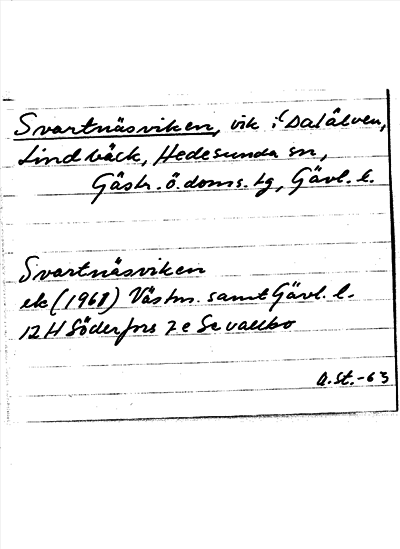 Svartnäsviken, vik i Dalälven,
Lindbäck, Hedesunda sn,
Gästr. ö. doms. tg, Gävl. l.
Svartnäsviken
ek (1968) Västm. samt Gävl. l.
12 H Söderfors 7 e Sevallbo
A. St. -63